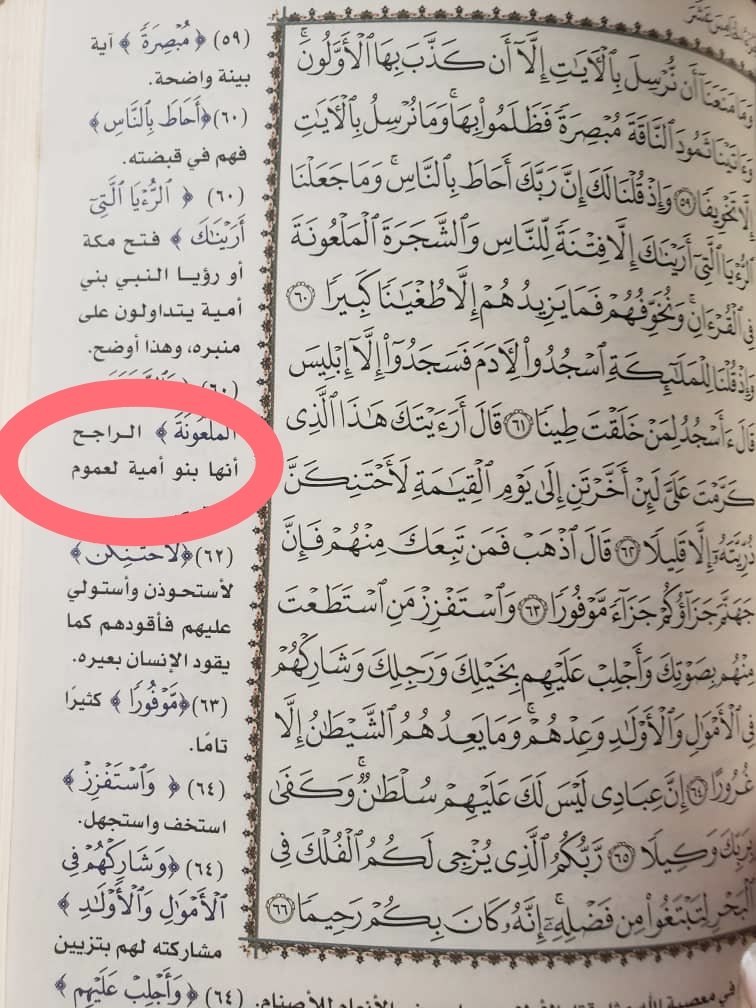 وَمَا مَنَعَنَآ أَن نُّرْسِلَ بِٱلْأَيَٰتِ إِلَّآ أَن كَذَّبَ بِهَا ٱلْأَوَّلُونَ ۚ
وَءَاتَيْنَا ثَمُودَ ٱلنَّاقَةَ مُبْصِرَةً فَظَلَمُوا۟ بِهَا ۚ وَمَا نُرْسِلُ بِٱلْأَيَٰتِ
إِلَّا تَخْوِيفًا ٥٩ وَإِذْ قُلْنَا لَكَ إِنَّ رَبَّكَ أَحَاطَ بِٱلنَّاسِ ۚ وَمَا جَعَلْنَا
ٱلرُّءْيَا ٱلَّتِىٓ أَرَيْنَٰكَ إِلَّا فِتْنَةً لِّلنَّاسِ وَٱلشَّجَرَةَ ٱلْمَلْعُونَةَ
فِى ٱلْقُرْءَانِ ۚ وَنُخَوِّفُهُمْ فَمَا يَزِيدُهُمْ إِلَّا طُغْيَٰنًا كَبِيرًا ٦٠
وَإِذْ قُلْنَا لِلْمَلَٰٓئِكَةِ ٱسْجُدُوا۟ لِأَدَمَ فَسَجَدُوٓا۟ إِلَّآ إِبْلِيسَ
قَالَ ءَأَسْجُدُ لِمَنْ خَلَقْتَ طِينًا ٦١ قَالَ أَرَءَيْتَكَ هَٰذَا ٱلَّذِى
كَرَّمْتَ عَلَىَّ لَئِنْ أَخَّرْتَنِ إِلَىٰ يَوْمِ ٱلْقِيَٰمَةِ لَأَحْتَنِكَنَّ
ذُرِّيَّتَهُۥٓ إِلَّا قَلِيلًا ٦٢ قَالَ ٱذْهَبْ فَمَن تَبِعَكَ مِنْهُمْ فَإِنَّ
جَهَنَّمَ جَزَآؤُكُمْ جَزَآءً مَّوْفُورًا ٦٣ وَٱسْتَفْزِزْ مَنِ ٱسْتَطَعْتَ
مِنْهُم بِصَوْتِكَ وَأَجْلِبْ عَلَيْهِم بِخَيْلِكَ وَرَجِلِكَ وَشَارِكْهُمْ
فِى ٱلْأَمْوَٰلِ وَٱلْأَوْلَٰدِ وَعِدْهُمْ ۚ وَمَا يَعِدُهُمُ ٱلشَّيْطَٰنُ إِلَّا
غُرُورًا ٦٤ إِنَّ عِبَادِى لَيْسَ لَكَ عَلَيْهِمْ سُلْطَٰنٌ ۚ وَكَفَىٰ
بِرَبِّكَ وَكِيلًا ٦٥ رَّبُّكُمُ ٱلَّذِى يُزْجِى لَكُمُ ٱلْفُلْكَ فِى
ٱلْبَحْرِ لِتَبْتَغُوا۟ مِن فَضْلِهِۦٓ ۚ إِنَّهُۥ كَانَ بِكُمْ رَحِيمًا ٦٦
(٥٩) ﴿مُبْصِرَةً﴾ آية
بينة واضحة.
(٦٠) ﴿أَحَاطَ بِٱلنَّاسِ﴾
فهم في قبضته.
(٦٠) ﴿ٱلرُّءْيَا ٱلَّتِىٓ
أَرَيْنَٰكَ﴾ فتح مكة
أو رؤيا النبي بني
أمية يتداولون على
منبره، وهذا أوضح.
(٦٠)
ٱلْمَلْعُونَةَ﴾ الراجح
أنها بنو أمية لعموم
(٦٢) ﴿لَأَحْتَنِكَنَّ﴾
لأستحوذن وأستولي
عليهم فأقودهم كما
يقود الإنسان بعيره.
(٦٣) ﴿مَّوْفُورًا﴾ كثيرًا
تامًا.
(٦٤) ﴿وَٱسْتَفْزِزْ﴾
استخف واستجهل.
(٦٤) ﴿وَشَارِكْهُمْ فِى
ٱلْأَمْوَٰلِ وَٱلْأَوْلَٰدِ﴾
مشاركته لهم بتزيين
للأصنام. (٦٤) ﴿وَأَجْلِبْ عَلَيْهِم﴾